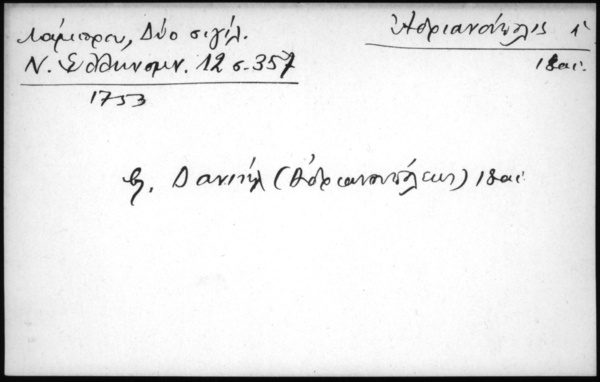 Λάμπρου, Δύο σιγίλ.
Ν. Ἑλληνομν. 12 σ. 357
1753
Ἀδριανούπολις 1
18 αἰ.
βλ. Δανιήλ (Ἀδριανουπόλεως) 18 αἰ.